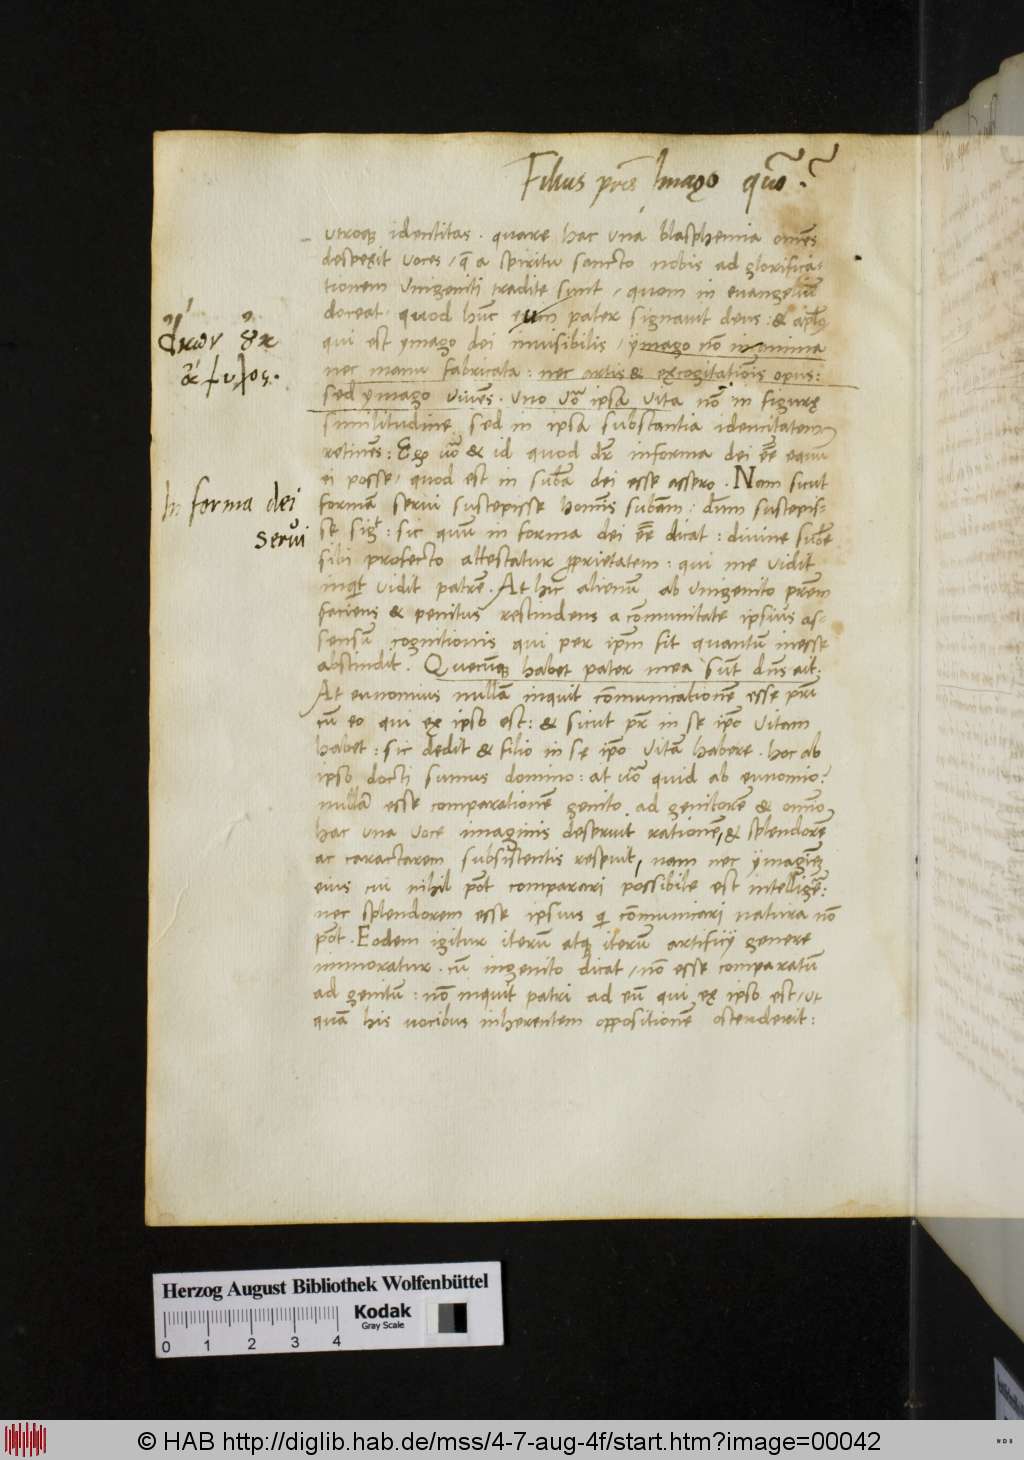 Filius pris Imago quo.
utroque identitas. quare hac una blasphemia omes
despexit voces, a spiritu sancto nobis ad glorifica-
tionem Unigeniti tradite sunt, quem in evangeliu
doceat. quod huc eum pater signavit deus: &
qui est ymago dei invisibilis, ymago no inanima
nec manu fabricata: nec artis & excogitationis opus:
sed ymago vives. uno ipsa vita no in figure
similitudine sed in ipsa substantia idemtitatem
retines: Ego & id quod dr in forma dei ee equu
ei posse, quod est in suba dei esse assero. Nam sicut
forma servi suscepisse homis subam: dum suscepis-
se sig: sic quu in forma dei ee dicat: divine sube
sibi profecto attestatur prietatem: qui me vidit
inqt vidit patre. At hic alienu ab unigenito prem
faciens & penitus rescindens a comunitate ipsius as-
sensu cognitionis qui per ipm fit quantu inesse
abscindit. Quecunque habet pater mea sut dns ait:
At eunomius nulla inquit comunicatione esse pri
cu eo qui ex ipso est: & sicut pr in se ipo vitam
habet: sic dedit & filio in se ipo vita habere. hoc ab
ipso docti sumus domino: at quid ab eunomio?
nulla esse comparatione genito ad genitore & omo
hac una voce imaginis deseruit ratione, & splendore
ac caractarem subsistentis respuit, nam nec ymagie
eius cui nihil pot comparari possibile est intellige:
nec splendorem esse ipsius qi comunicari natura no
pot. Eodem igitur iteru atque iteru artificij genere
immoratur. cu ingenito dicat, no esse comparatu
ad genitu: no inquit patri ad eu qui ex ipso est, ut
qua his vocibus inherentem oppositione ostenderit:
In forma dei
servi
Herzog August Bibliothek Wolfenbüttel
Kodak
Gray Scale
0 1 2 3 4
© HAB http://diglib.hab.de/mss/4-7-aug-4f/start.htm?image=00042